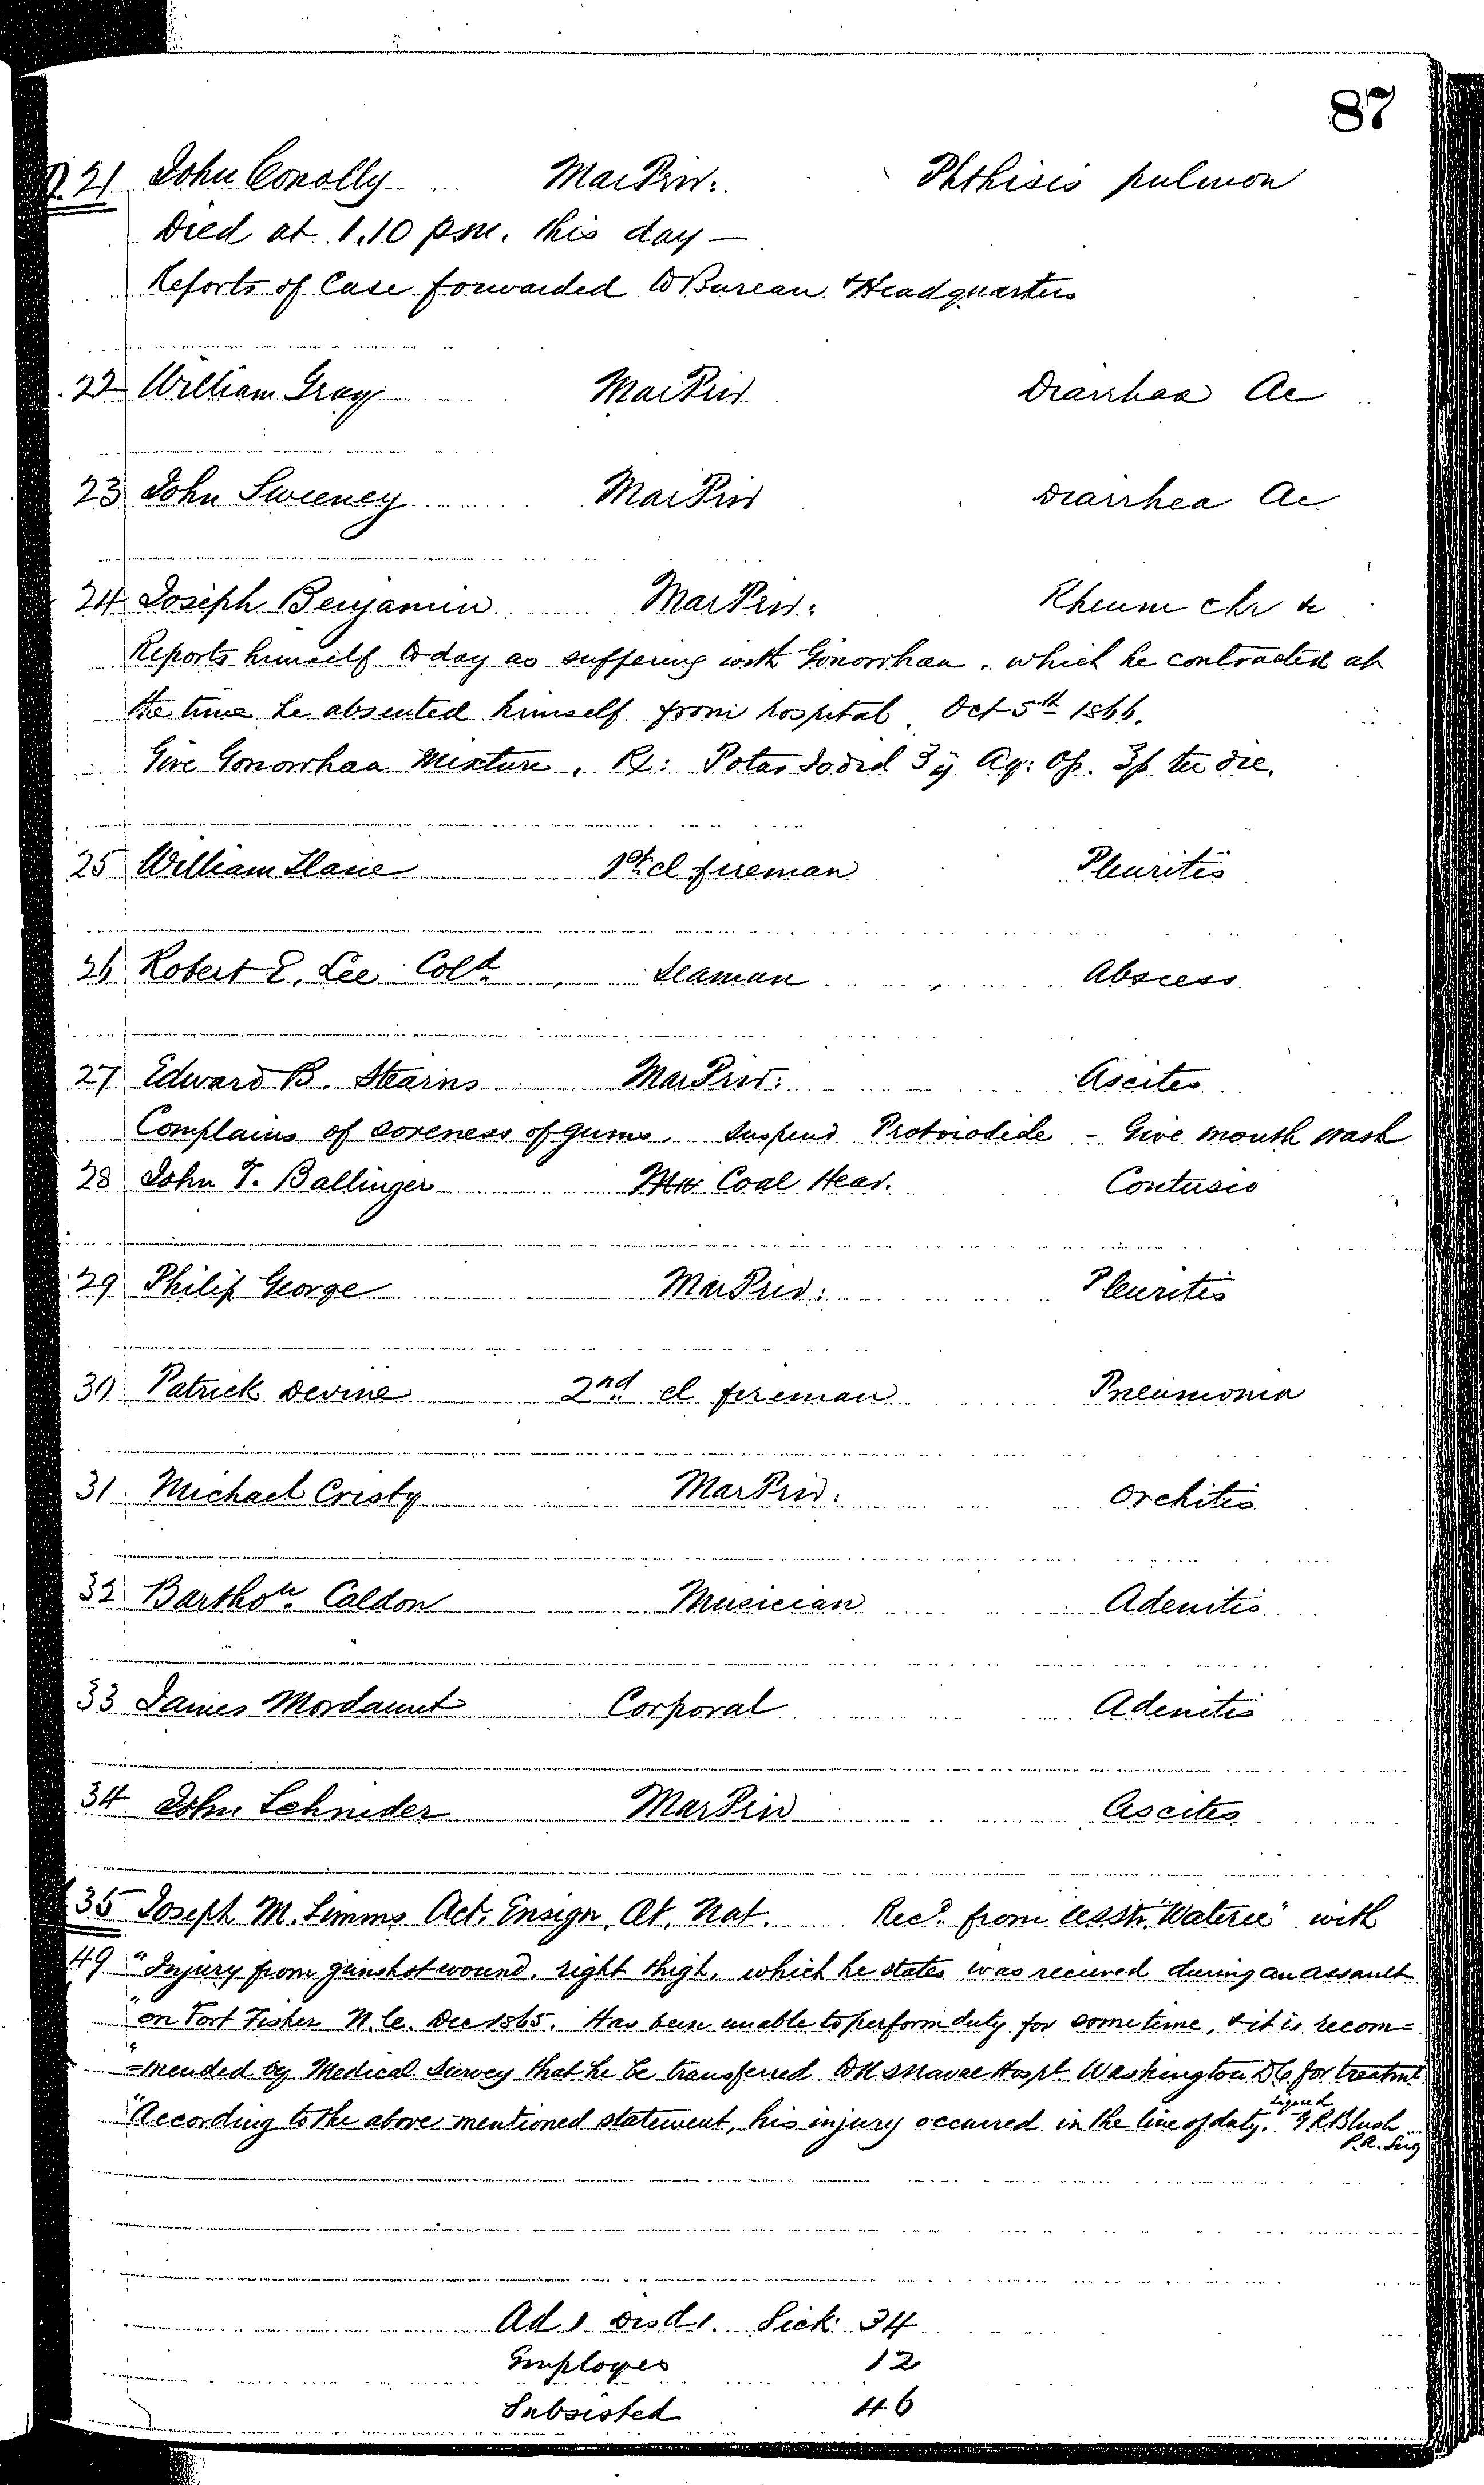 87
D. 21 John Conolly Mar Priv: Phthisis pulmon
Died at 1.10 p.m. this day —
Reports of Case forwarded to Bureau & Headquarters
22 William Gray Mar Priv Diarrhaa Ac
23 John Sweeney Mar Priv Diarrhea Ac
24 Joseph Benjamin Mar Priv: Rheum chr &c
Reports himself to day as suffering with Gonorrhaa, which he contracted at
the time he absented himself from hospital, Oct 5th 1866.
Give Gonorrhaa Mixture. Rx: Potas Iodid ʒij Aq: Oj. ℥ß ter die.
25 William 1st cl fireman Pleuritis
26 Robert E. Lee Cold Seaman Abscess
27 Edward B. Stearns Mar Priv: Ascites
Complains of soreness of gums. Suspend Protoiodide - Give mouth wash
28 John T. Ballinger Coal Heav. Contusio
29 Philip George Mar Priv: Pleuritis
30 Patrick Devine 2nd cl fireman Pneumonia
31 Michael Cristy Mar Priv: Orchitis
32 Bartho Caldon Musician Adenitis
33 James Mordaunt Corporal Adenitis
34 John Schnider Mar Priv Ascites
35 Joseph M. Simms Act. Ensign, At. Nat. Recd. from USStr "Wateree" with
49 "Injury from gunshot wound, right thigh, which he states was recieved during an assault
"on Fort Fisher N.C. Dec 1865. Has been unable to perform duty for some time, & it is recom=
"=mended by Medical Survey that he be transferred to U S Naval Hospt. Washington DC for treatmt
"According to the above mentioned statement, his injury occurred in the line of duty. signed G.R.Blush
P.A. Surg
Ad 1 Disd 1. Sick: 34
Employes 12
Subsisted 46